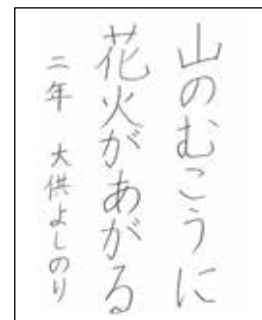 山のむこうに
花火があがる
二年　大供よしのり